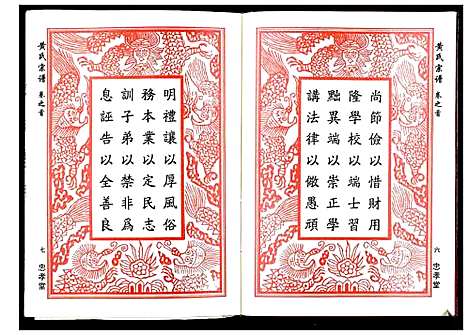 黃氏宗譜
卷之首
尚節儉以惜財用
隆學校以端士習
黜異端以崇正學
講法律以儆愚頑
六
忠孝堂
黃氏宗譜
卷之首
明禮讓以厚風俗
務本業以定民志
訓子弟以禁非為
息誣告以全善良
七
忠孝堂